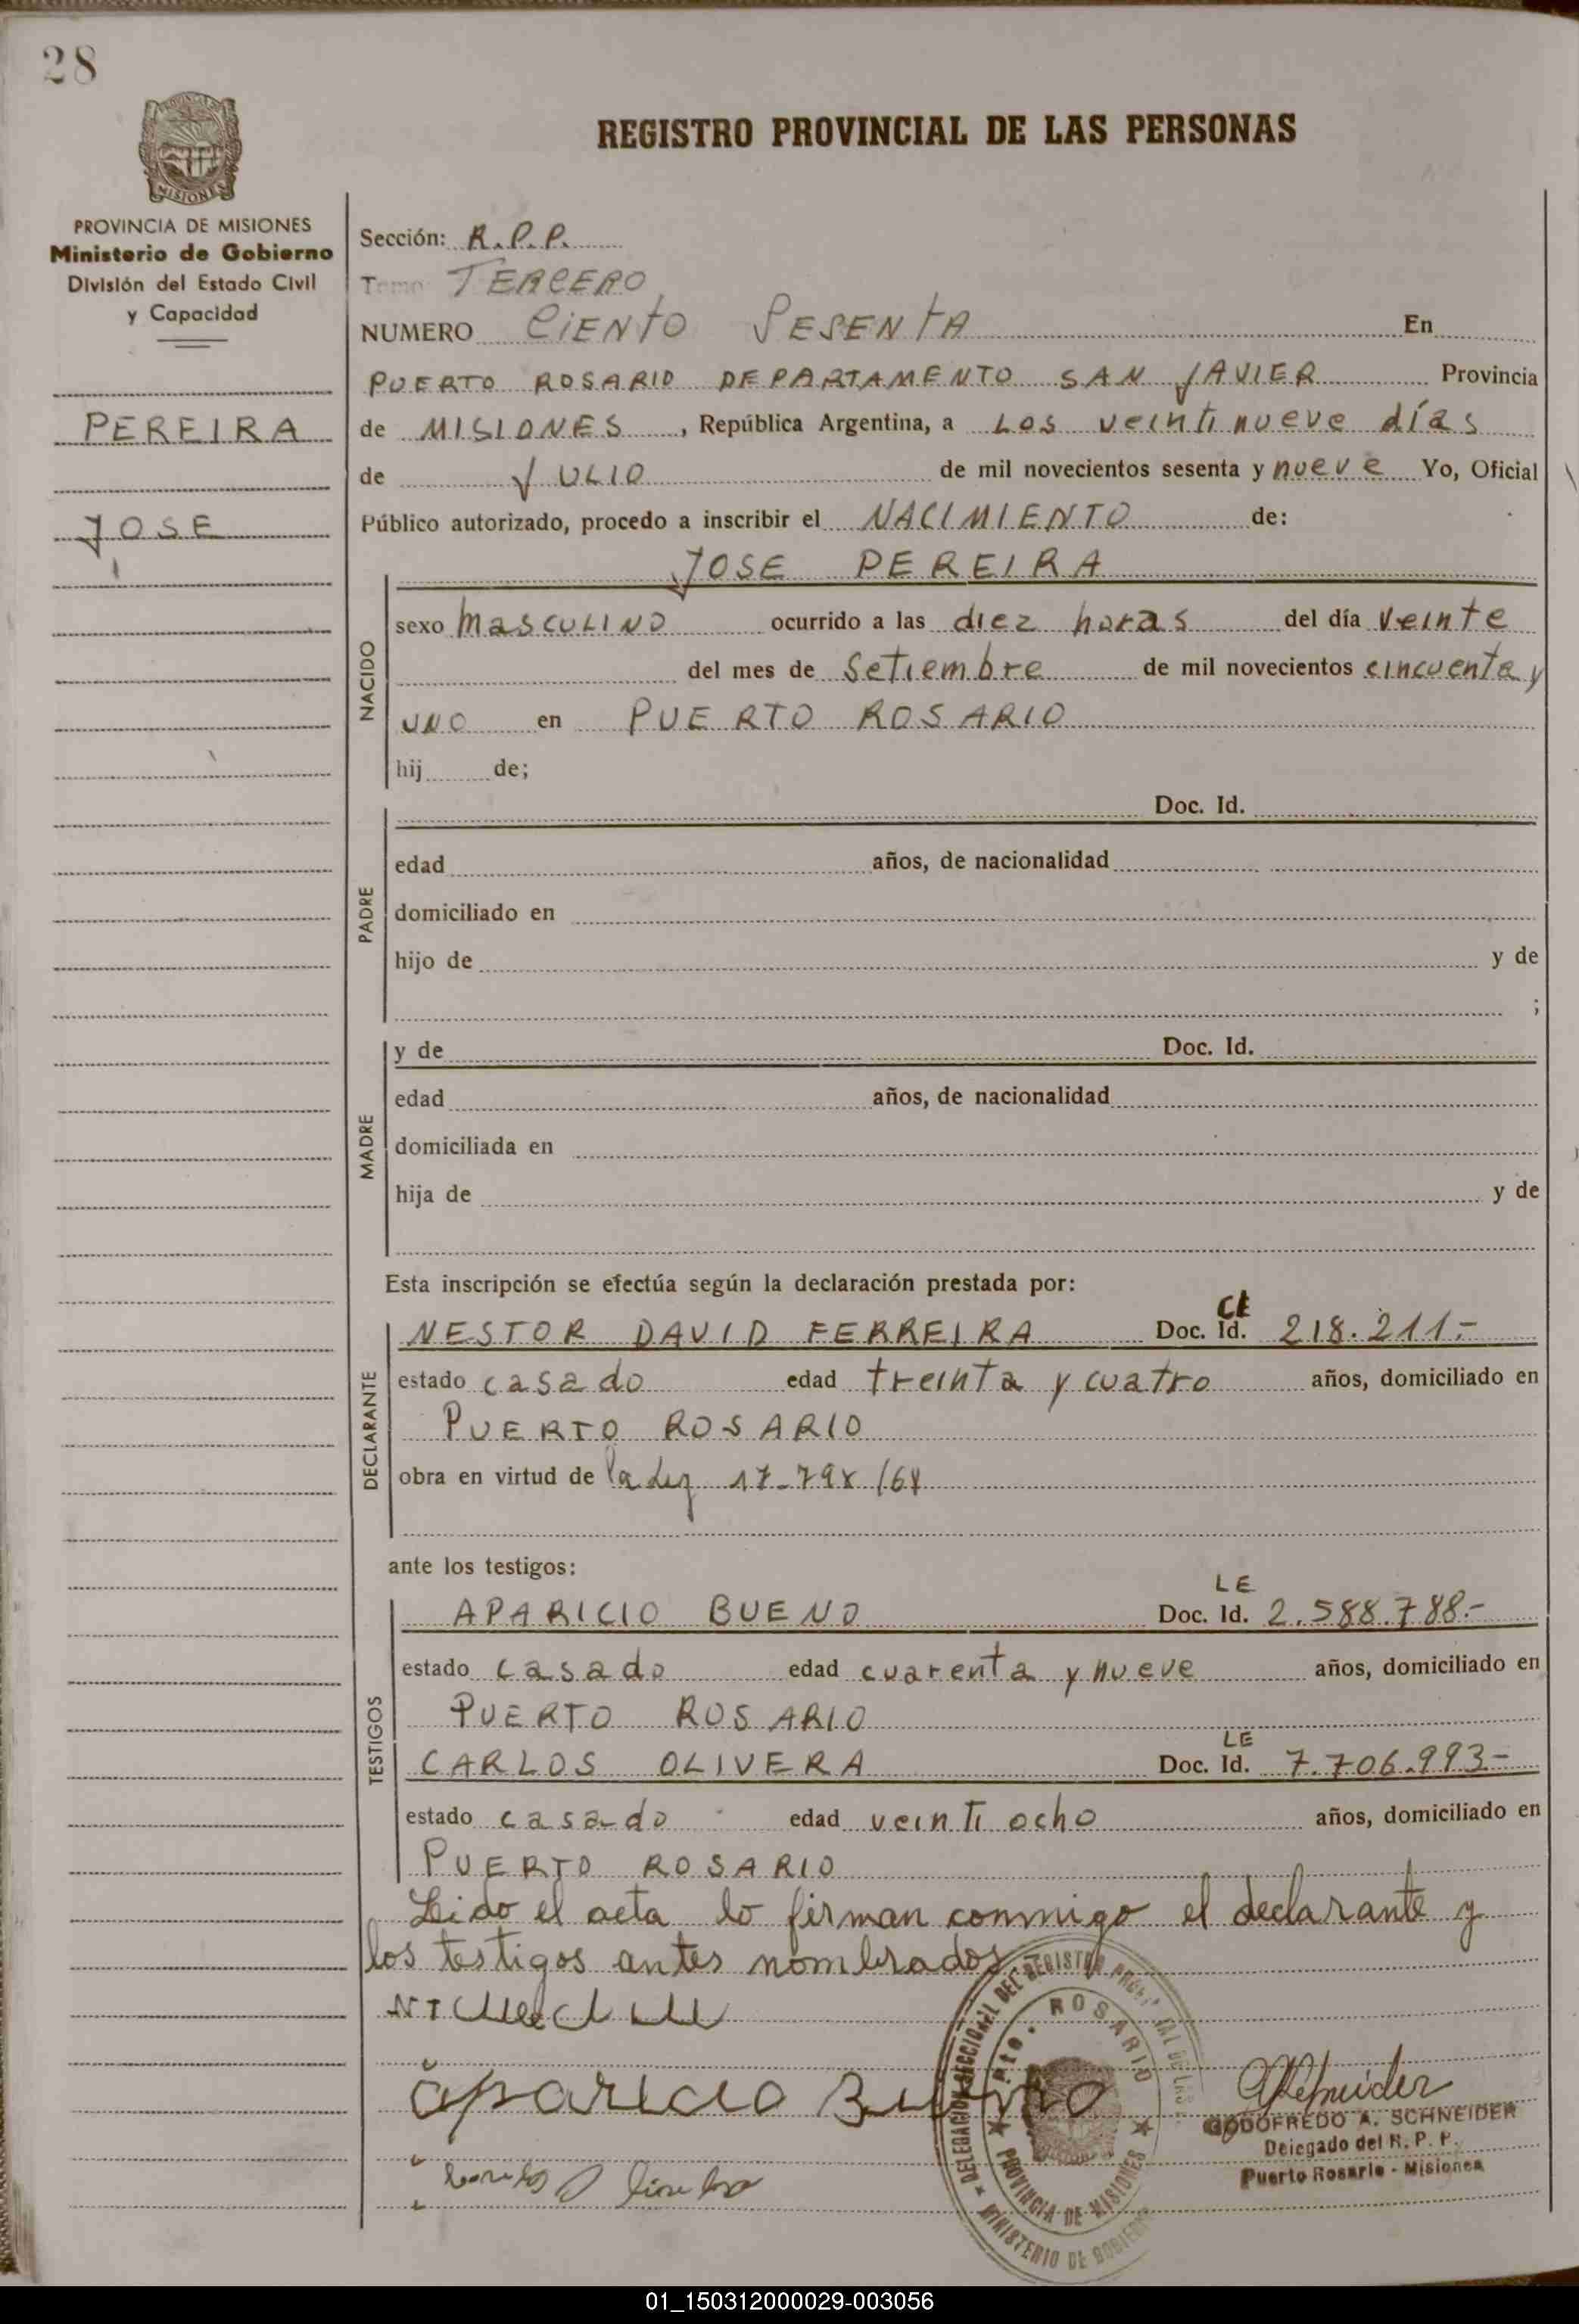 28
REGISTRO PROVINCIAL DE LAS PERSONAS
MISIONES
PROVINCIA DE MISIONES
Ministerio de Gobierno
División del Estado Civil
y Capacidad
PEREIRA
JOSE
Sección: R.P.P.
Tomo TERCERO
NUMERO CIENTO SESENTA En
PUERTO ROSARIO DEPARTAMENTO SAN JAVIER Provincia
de MISIONES, República Argentina, a LOS veinti nueve días
de JULIO de mil novecientos sesenta y nueve Yo, Oficial
Público autorizado, procedo a inscribir el NACIMIENTO de:
JOSE PEREIRA
NACIDO
sexo MASCULINO ocurrido a las diez horas del día veinte
del mes de Setiembre de mil novecientos cincuenta y
uno en PUERTO ROSARIO
hij de;
PADRE
Doc. Id.
edad años, de nacionalidad
domiciliado en
hijo de y de
;
MADRE
y de Doc. Id.
edad años, de nacionalidad
domiciliada en
hija de y de
Esta inscripción se efectúa según la declaración prestada por:
DECLARANTE
NESTOR DAVID FERREIRA Doc. Id. CI 218.211.-
estado casado edad treinta y cuatro años, domiciliado en
PUERTO ROSARIO
obra en virtud de la Ley
ante los testigos:
TESTIGOS
APARICIO BUENO Doc. Id. LE 2.588.788.-
estado casado edad cuarenta y nueve años, domiciliado en
PUERTO ROSARIO
CARLOS OLIVERA Doc. Id. LE 7.706.993-
estado casado edad veinti ocho años, domiciliado en
PUERTO ROSARIO
Leido el acta lo firman conmigo el declarante y
los testigos antes nombrados
aparicio Bueno
DELEGACION SECCIONAL DEL REGISTRO
Pto. ROSARIO
PROVINCIA DE MISIONES
MINISTERIO DE GOBIERNO
GODOFREDO A. SCHNEIDER
Delegado del R. P. P.
Puerto Rosario - Misiones
01_150312000029-003056